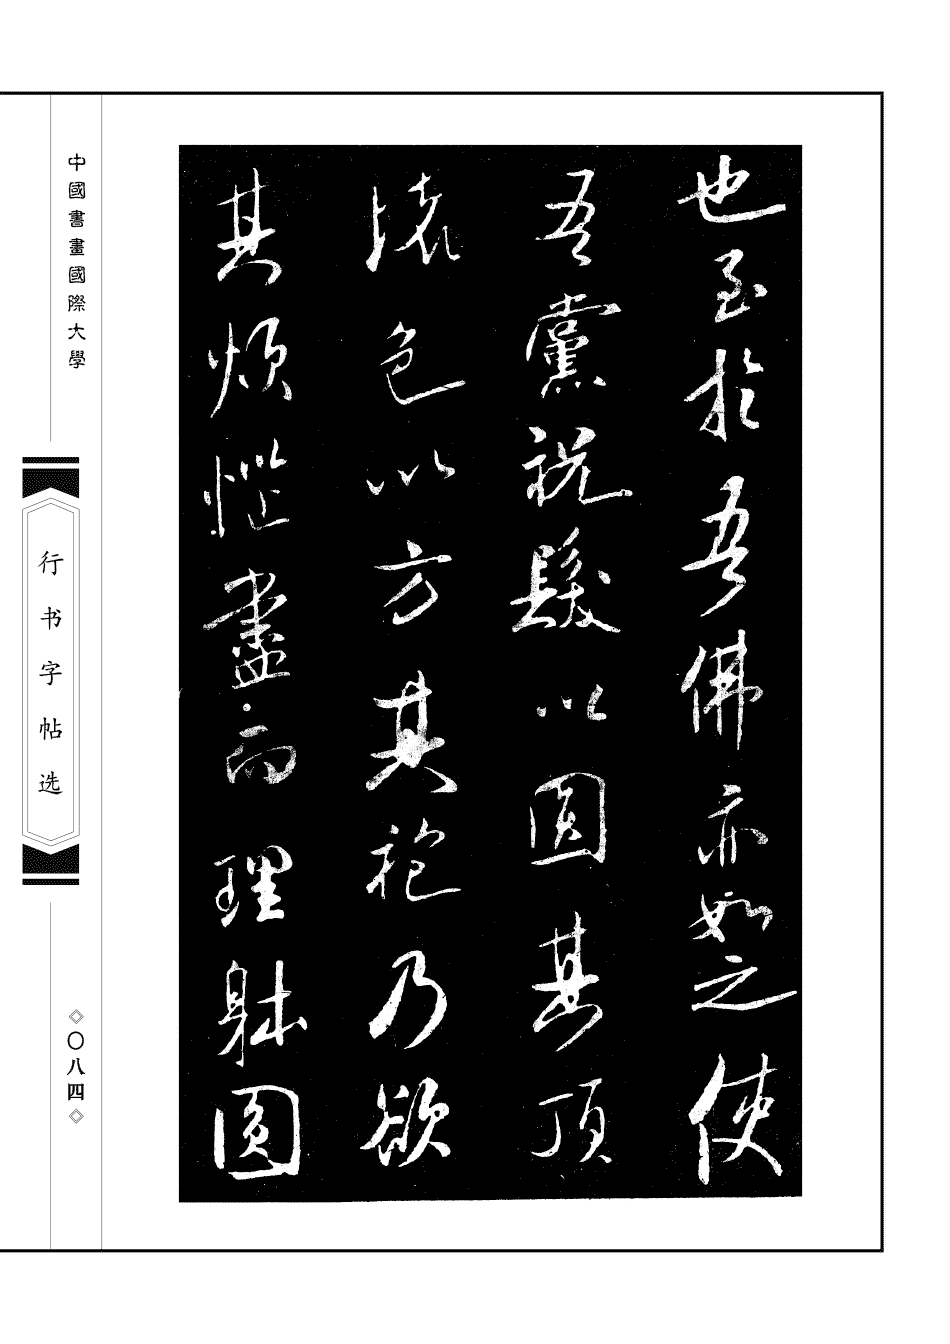 也至於吾佛亦如之使
吾黨祝髮以圓其頂
壞色以方其袍乃欲
其煩惱盡而理躰圓
中國書畫國際大學
行书字帖选
◇〇八四◇